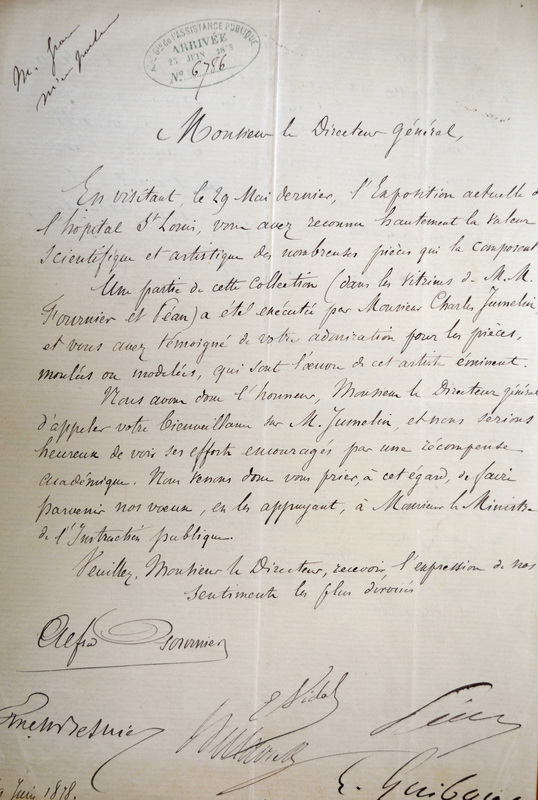 M.
ADMON DE L'ASSISTANCE PUBLIQUE
ARRIVÉE
JUIN 1878
No 6786
Monsieur le Directeur général,
En visitant, le 29 Mai dernier, l'Exposition actuelle
l'hôpital St Louis, vous avez reconnu hautement la valeur
scientifique et artistique des nombreuses pièces qui la composent
Une partie de cette collection (dans les vitrines de M.M.
Fournier et Péan) a été exécutée par Monsieur Charles Jumelin,
et vous avez témoigné de votre admiration pour les pièces,
moulées ou modelées, qui sont l'œuvre de cet artiste éminent.
Nous avons donc l'honneur, Monsieur le Directeur général
d'appeler votre bienveillance sur M. Jumelin, et nous serions
heureux de voir ses efforts encouragés par une récompense
académique. Nous venons donc vous prier, à cet égard, de faire
parvenir nos vœux, en les appuyant, à Monsieur le Ministre
de l'Instruction publique.
Veuillez, Monsieur le Directeur, recevoir l'expression de nos
sentiments les plus dévoués
Alfred Fournier
E Vidal
Péan
Ernest Besnier
E. Guibout
Juin 1878.